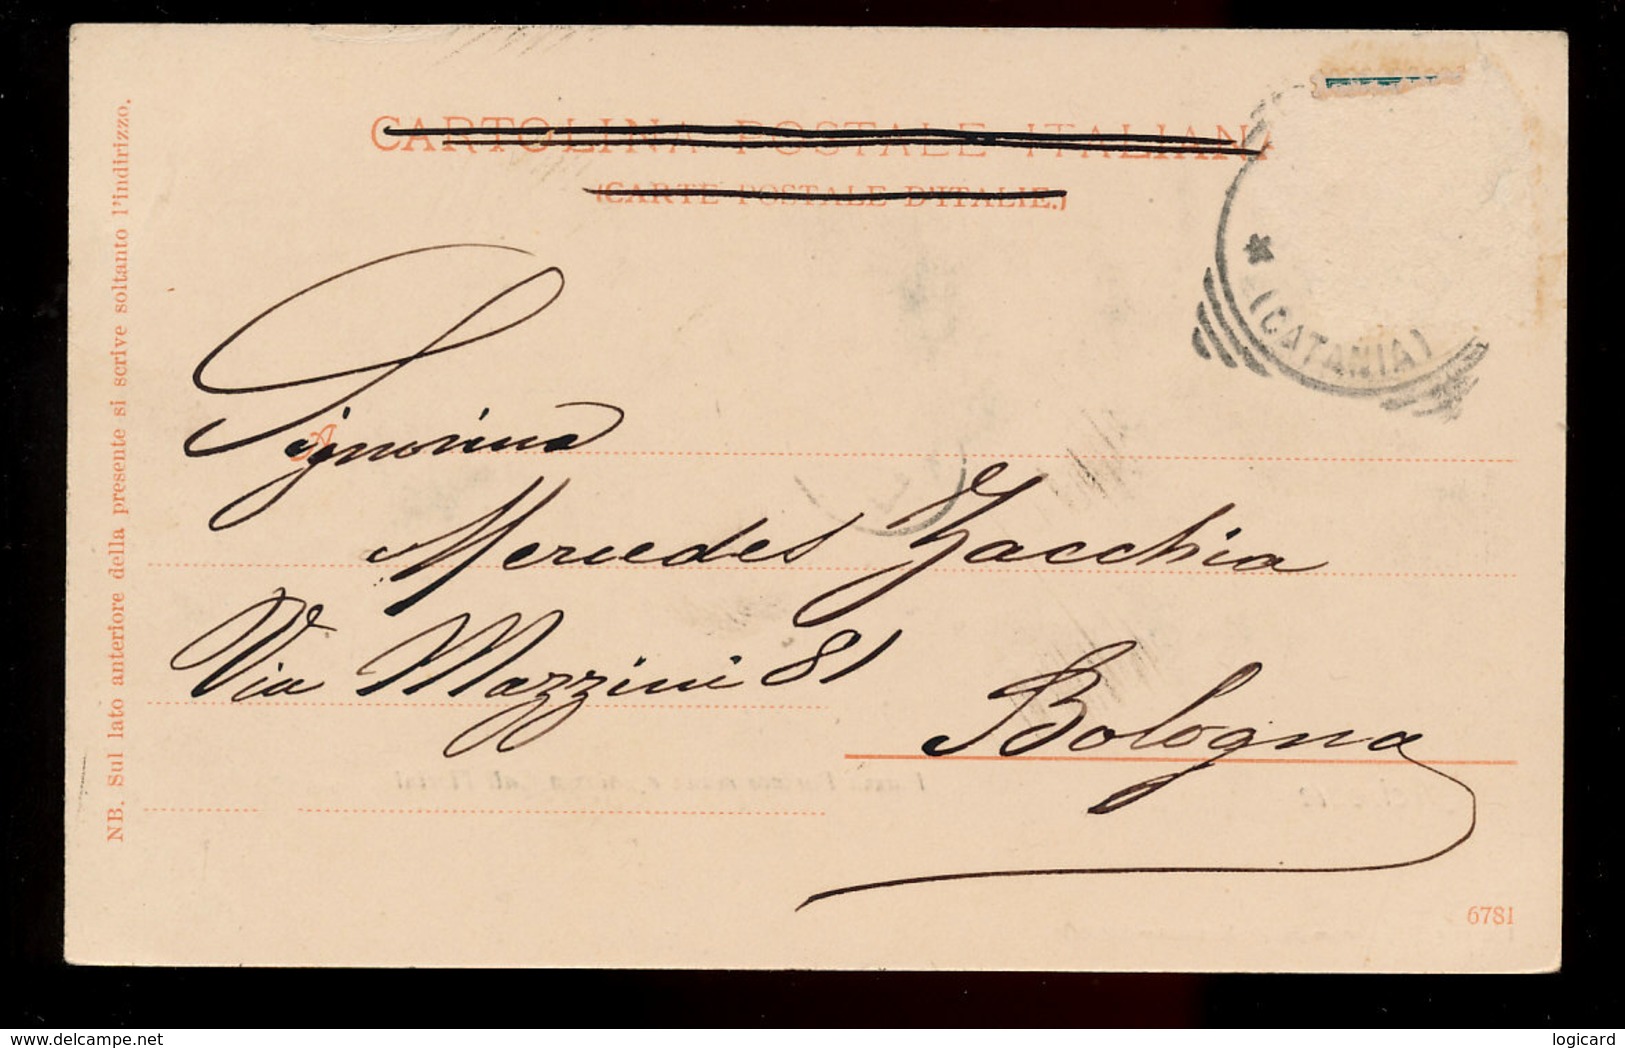 CARTOLINA POSTALE ITALIANA
(CARTE POSTALE D'ITALIE.)
NB. Sul lato anteriore della presente si scrive soltanto l'indirizzo.
* (CATANIA)
A
Signorina
Mercedes Zacchia
Via Mazzini 81
Bologna
6781
delcampe.net
logicard